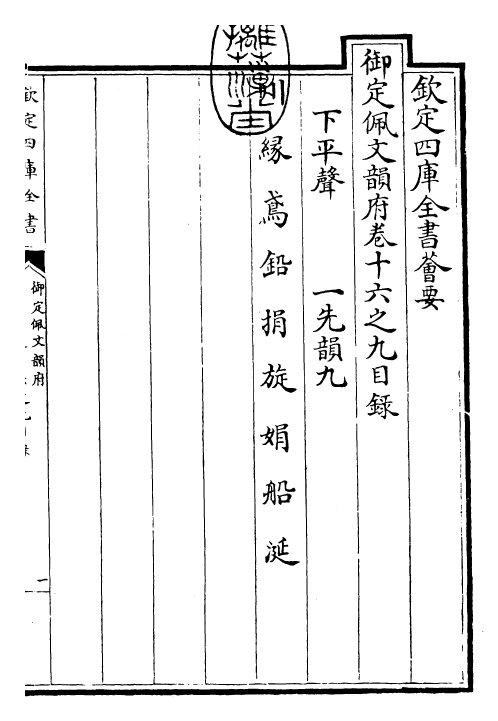 欽定四庫全書薈要
御定佩文韻府卷十六之九目録
下平聲　一先韻九
緣　鳶　鉛　捐　旋　娟　船　涎
欽定四庫全書
御定佩文韻府
一